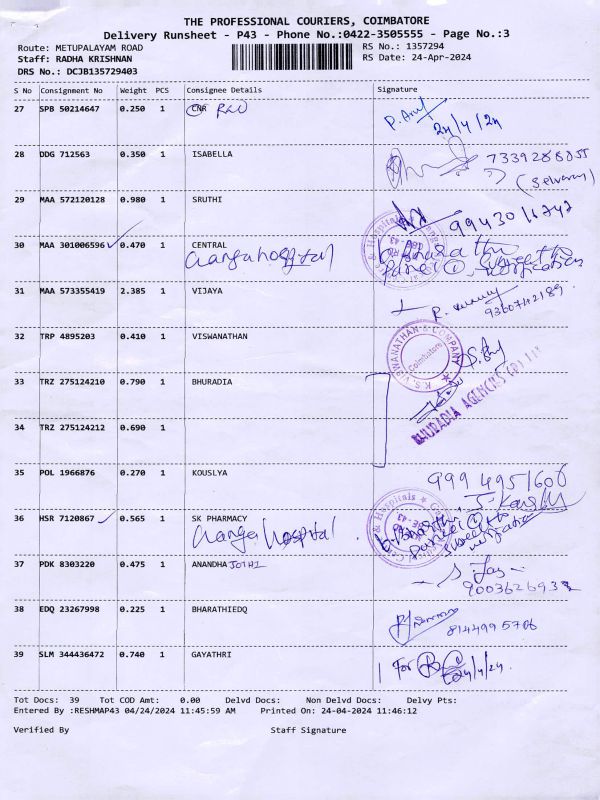 THE PROFESSIONAL COURIERS, COIMBATORE
Delivery Runsheet - P43 - Phone No.:0422-3505555 - Page No.:3
Route: METUPALAYAM ROAD RS No.: 1357294
Staff: RADHA KRISHNAN RS Date: 24-Apr-2024
DRS No.: DCJB135729403
S No Consignment No Weight PCS Consignee Details Signature
27 SPB 50214647 0.250 1
24/4/24
28 DDG 712563 0.350 1 ISABELLA
(Selvaraj)
29 MAA 572120128 0.980 1 SRUTHI
30 MAA 301006596 0.470 1 CENTRAL
Ganga hospital
31 MAA 573355419 2.385 1 VIJAYA
32 TRP 4895203 0.410 1 VISWANATHAN
K.S. VISWANATHAN & COMPANY
Coimbatore
33 TRZ 275124210 0.790 1 BHURADIA
BHURADIA AGENCIES (P) LTD
34 TRZ 275124212 0.690 1
35 POL 1966876 0.270 1 KOUSLYA
999 4951606
36 HSR 7120867 0.565 1 SK PHARMACY
Ganga hospital
37 PDK 8303220 0.475 1 ANANDHA JOTHI
38 EDQ 23267998 0.225 1 BHARATHIEDQ
8144995706
39 SLM 344436472 0.740 1 GAYATHRI
for 24/4/24
Tot Docs: 39 Tot COD Amt: 0.00 Delvd Docs: Non Delvd Docs: Delvy Pts:
Entered By :RESHMAP43 04/24/2024 11:45:59 AM Printed On: 24-04-2024 11:46:12
Verified By Staff Signature